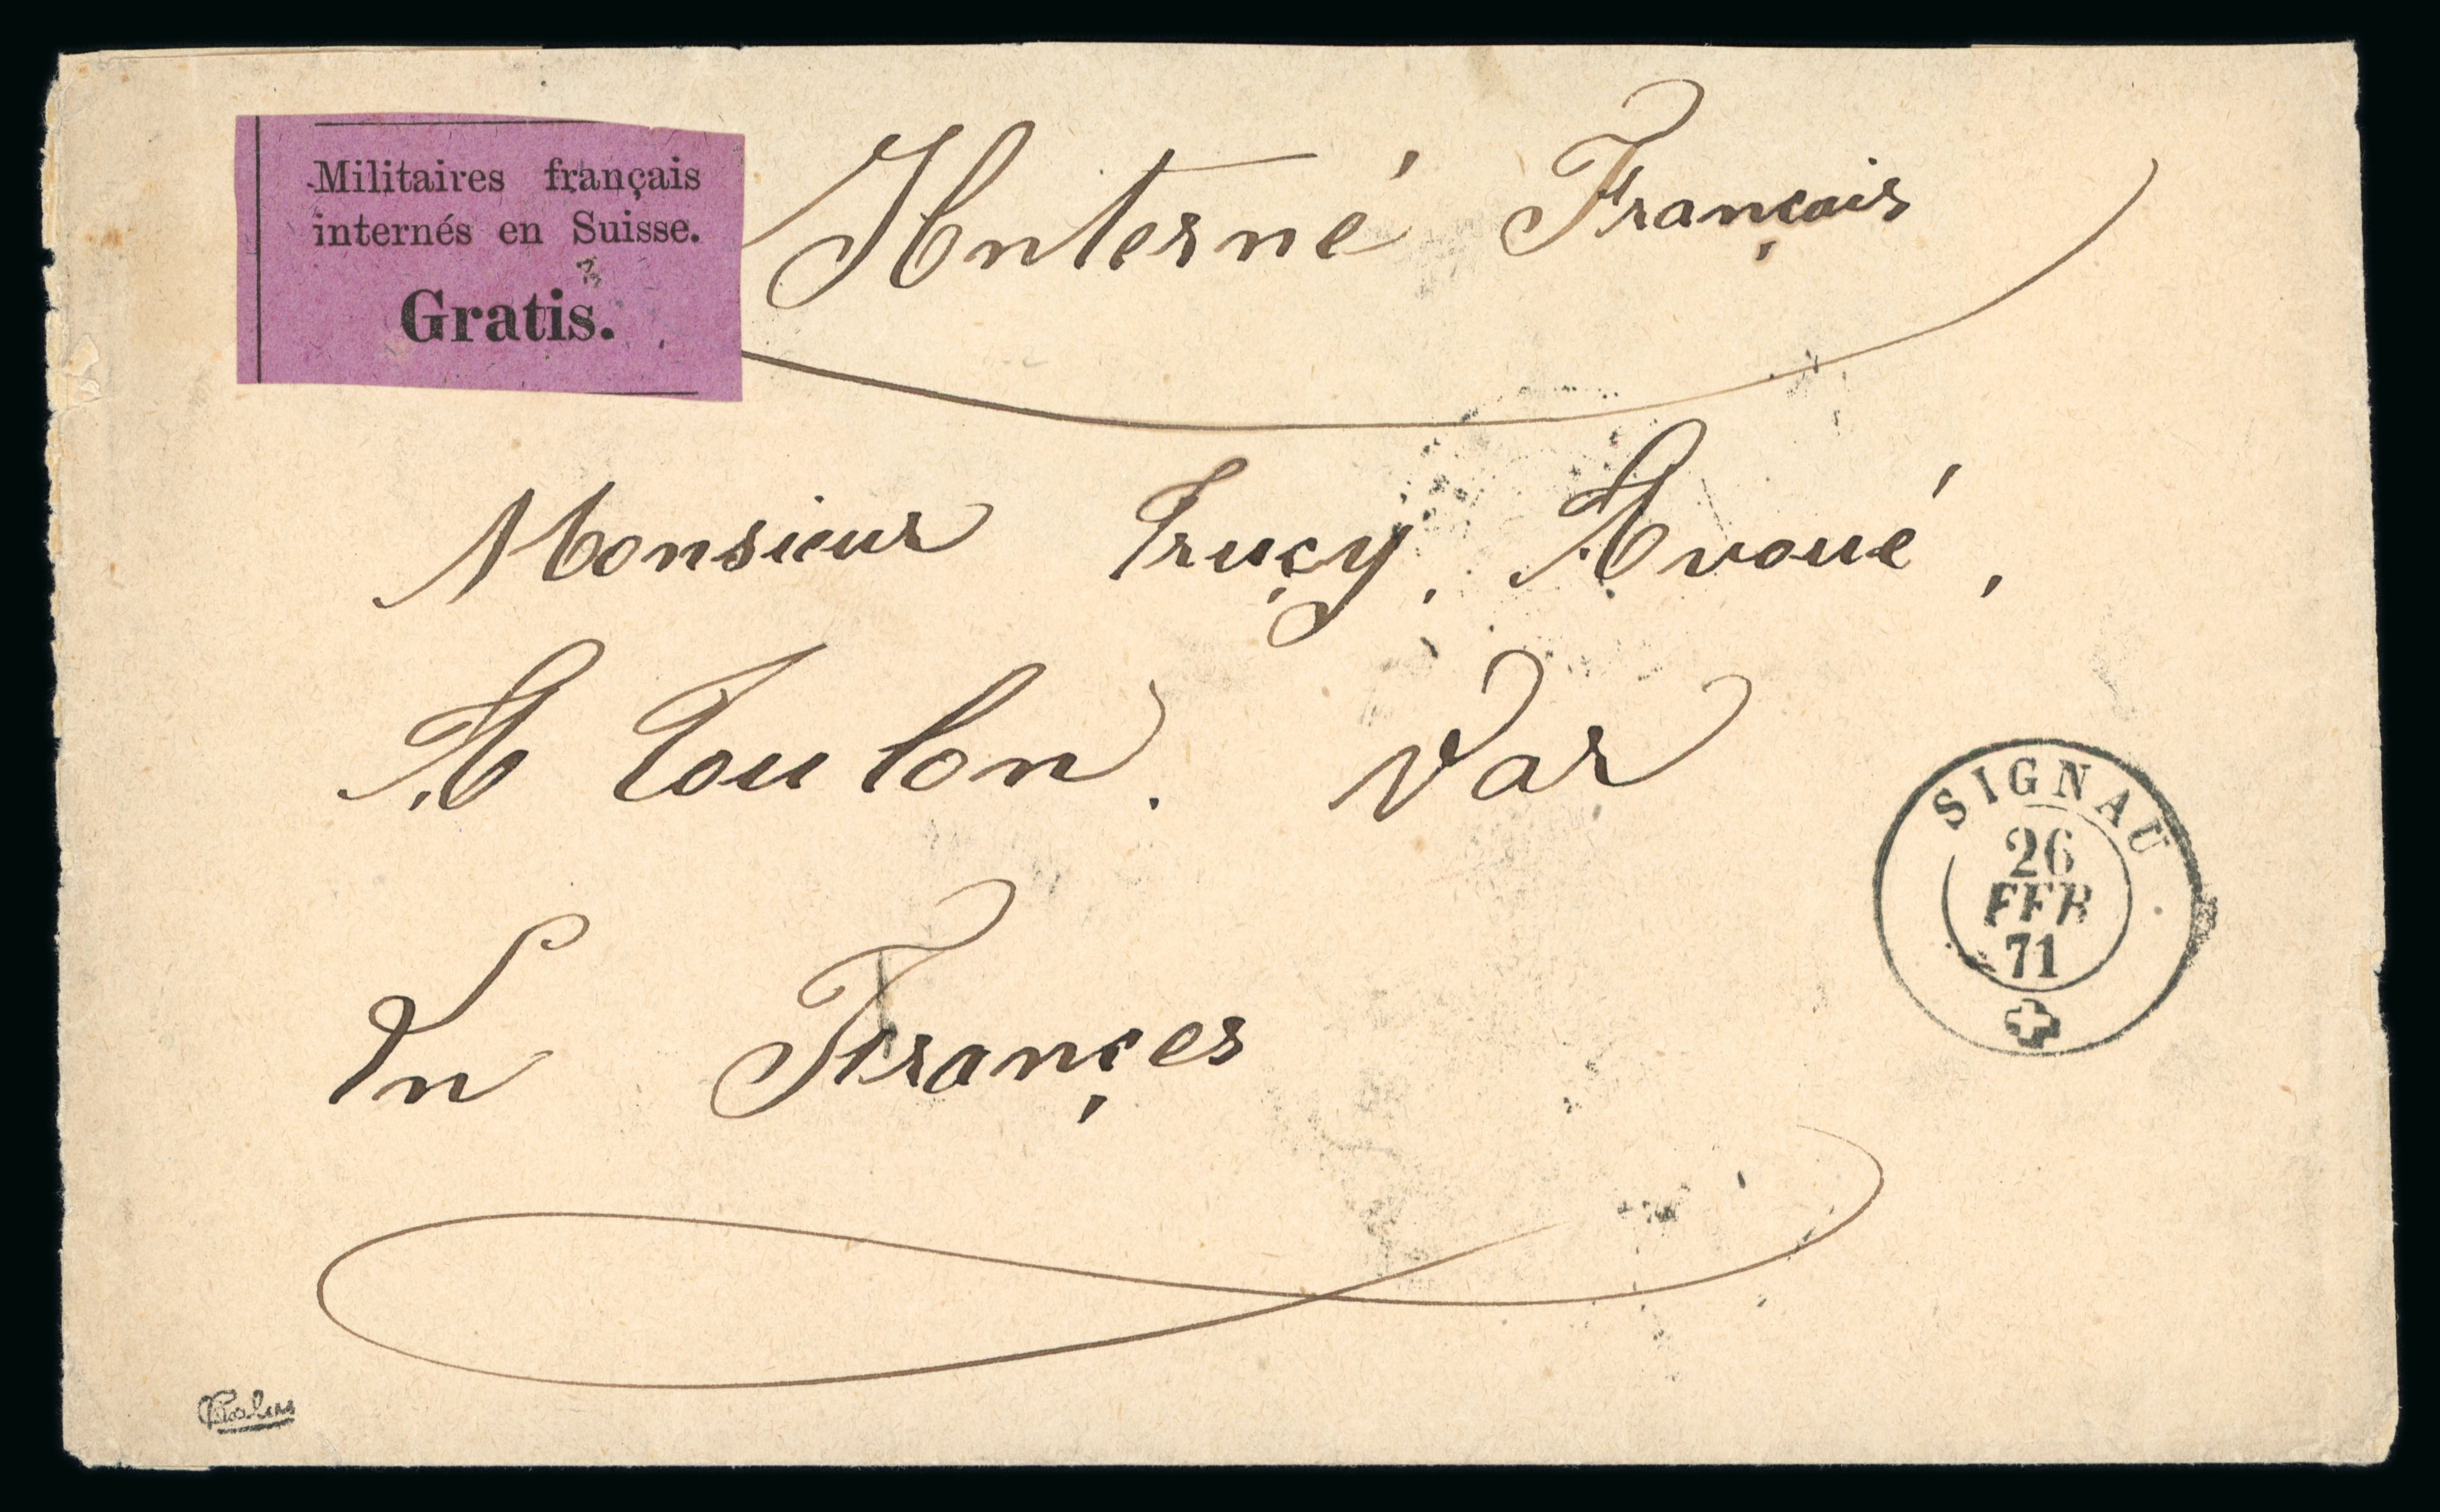 Militaires français
internés en Suisse.
Gratis.
Interné Français
Monsieur Truçy, Avoué,
A Toulon. Var
En Françes
SIGNAU
26
FEB
71